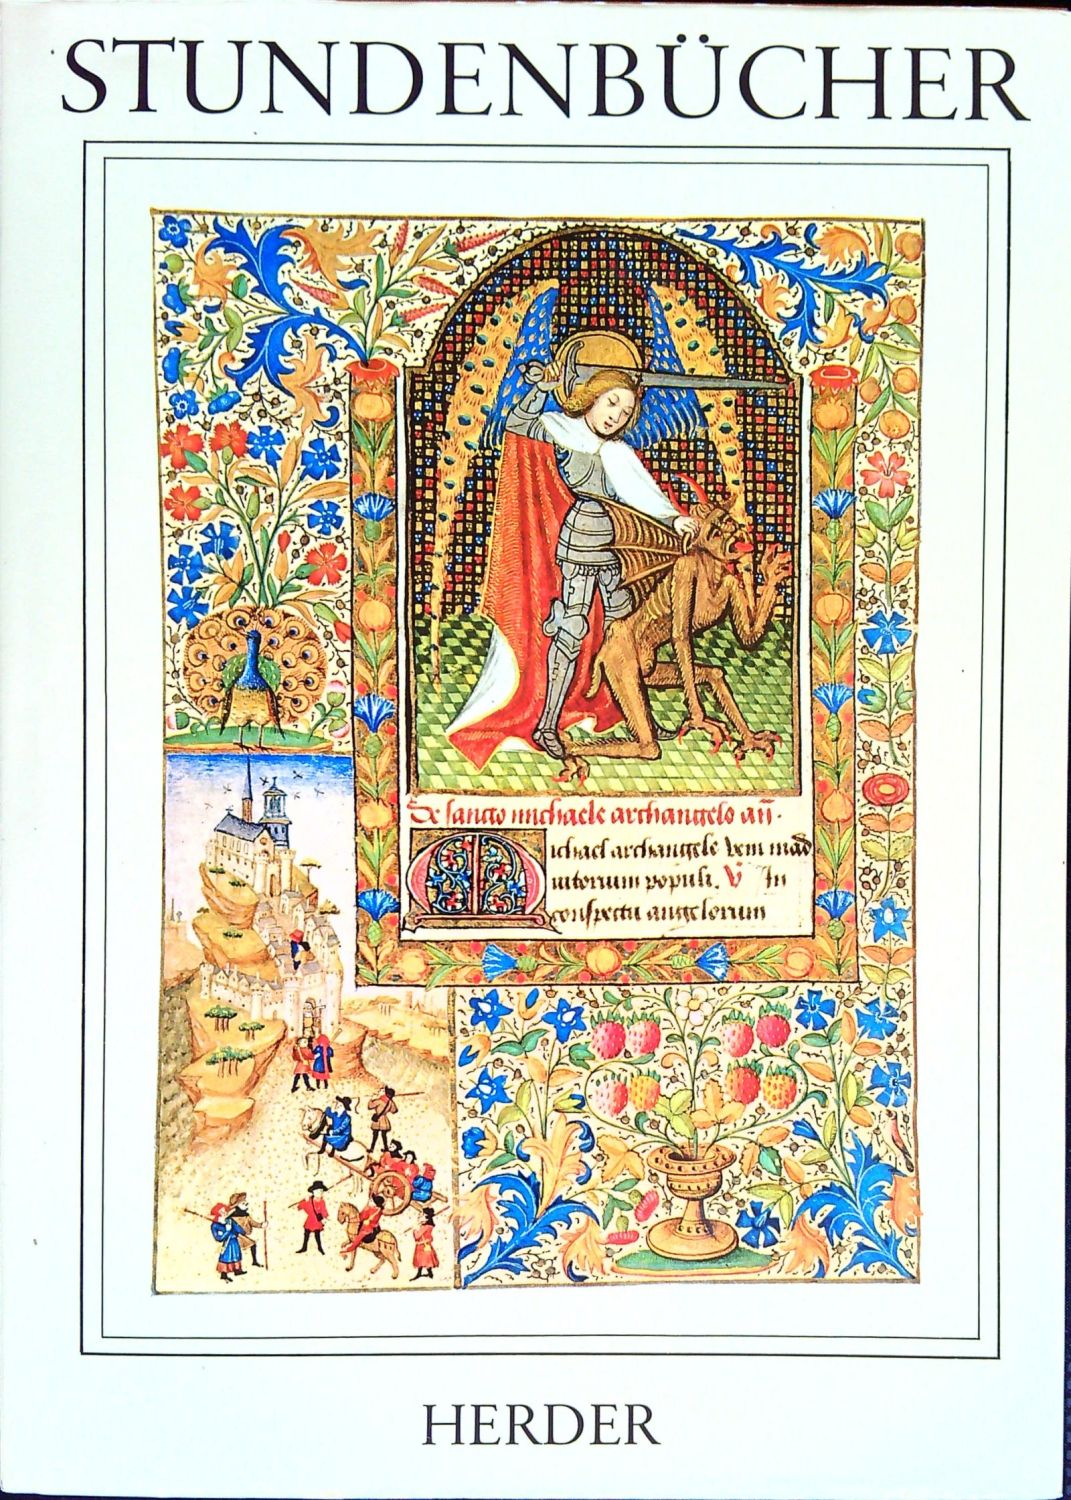 STUNDENBÜCHER
De sancto michaele archangelo añ.
Michael archangele veni in ad
iutorium populi. V In
conspectu angelorum
HERDER